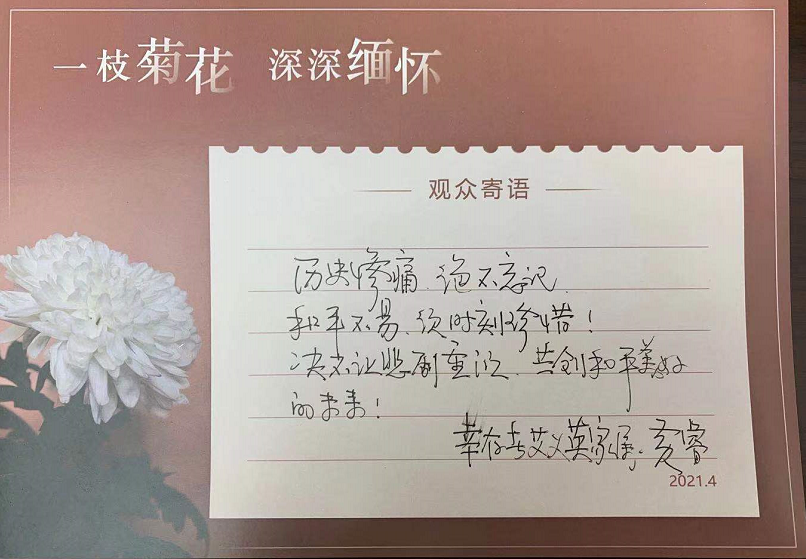 一枝菊花 深深缅怀
观众寄语
历史惨痛、绝不忘记、
和平不易、须时刻珍惜!
决不让悲剧重演、共创和平美好
的未来!
幸存者艾义英家属、黄睿
2021.4